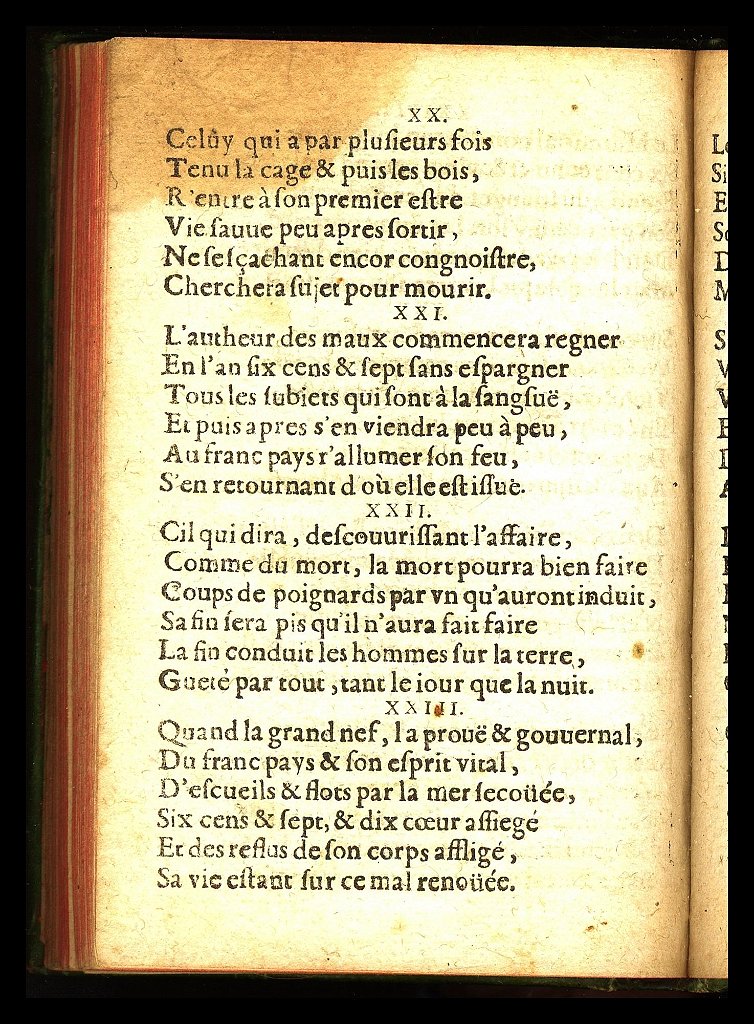 XX.
Celûy qui a par pluſieurs fois
Tenu la cage & puis les bois,
R'entre à ſon premier eſtre
Vie ſauue peu apres ſortir,
Ne ſe ſçachant encor congnoiſtre,
Cherchera ſujet pour mourir.
XXI.
L'autheur des maux commencera regner
En l'an ſix cens & ſept ſans eſpargner
Tous les ſubiets qui ſont à la ſangſuë,
Et puis apres s'en viendra peu à peu,
Au franc pays r'allumer ſon feu,
S'en retournant d où elle eſt iſſuë.
XXII.
Cil qui dira, deſcouuriſſant l'affaire,
Comme du mort, la mort pourra bien faire
Coups de poignards par vn qu'auront induit,
Sa fin ſera pis qu'il n'aura fait faire
La fin conduit les hommes ſur la terre,
Gueté par tout, tant le iour que la nuit.
XXIII.
Quand la grand nef, la prouë & gouuernal,
Du franc pays & ſon eſprit vital,
D'eſcueils & flots par la mer ſecoüée,
Six cens & ſept, & dix cœur aſſiegé
Et des reflus de ſon corps affligé,
Sa vie eſtant ſur ce mal renoüée.